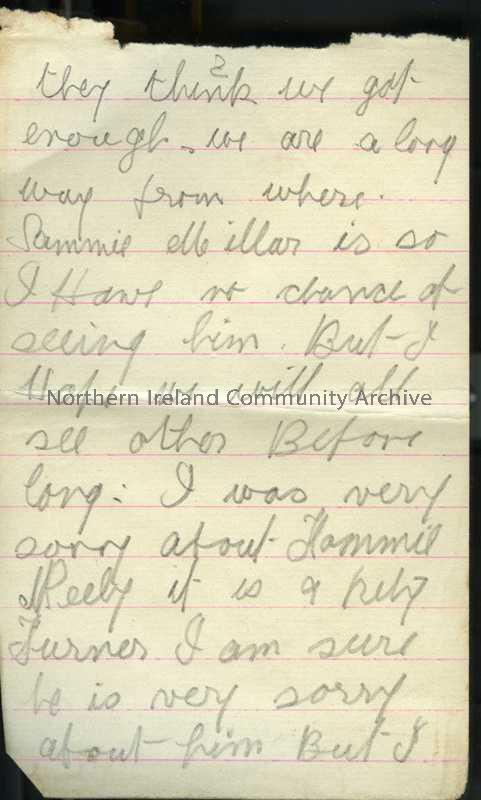 2
they think we got
enough. we are a long
way from where.
Sammie Millar is so
I Have no chance of
seeing him. But I
Hope we will all
Northern Ireland Community Archive
see other Before
long: I was very
sorry about Tommie
it is a
Turner I am sure
he is very sorry
about him But I